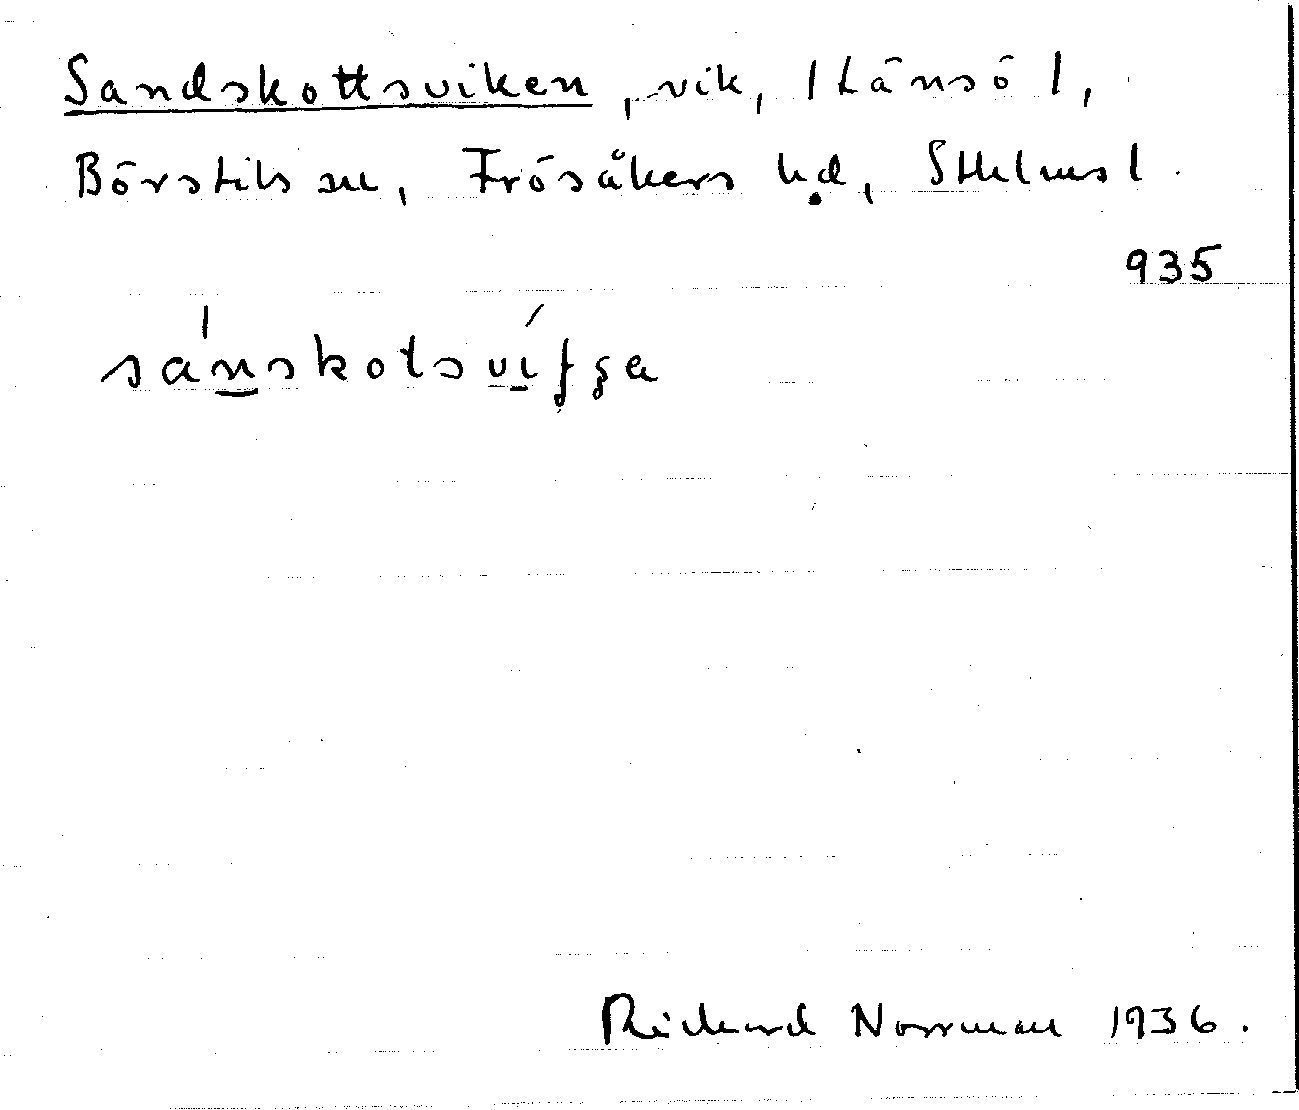 Sandskottsviken, vik, /Länsö/,
Börstils sn, Frösåkers hd, Sthlms l.
935
sánskotsvíʃʂa
Rickard Norrman 1936.